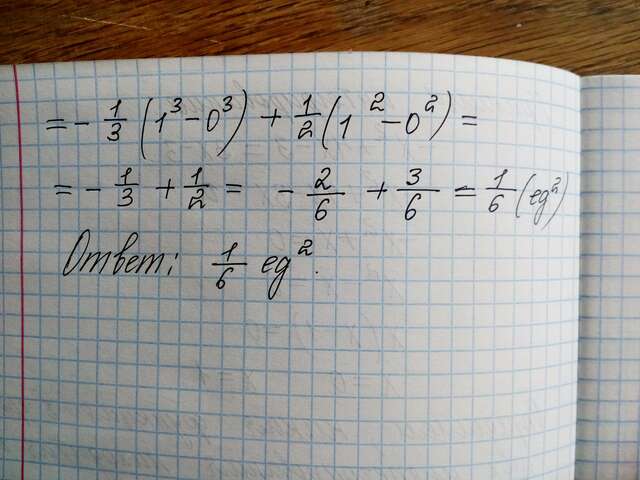 = - 1/3 (1³ - 0³) + 1/2 (1² - 0²) =
= - 1/3 + 1/2 = - 2/6 + 3/6 = 1/6 (ед²)
Ответ: 1/6 ед².